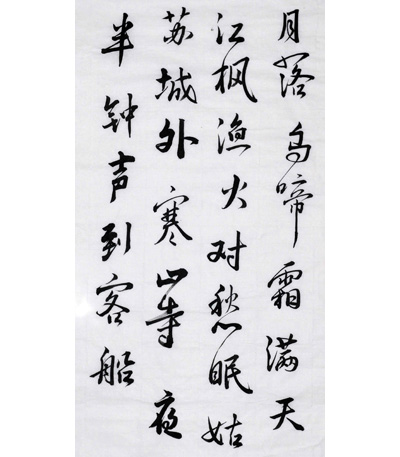 月落乌啼霜满天
江枫渔火对愁眠姑
苏城外寒山寺夜
半钟声到客船